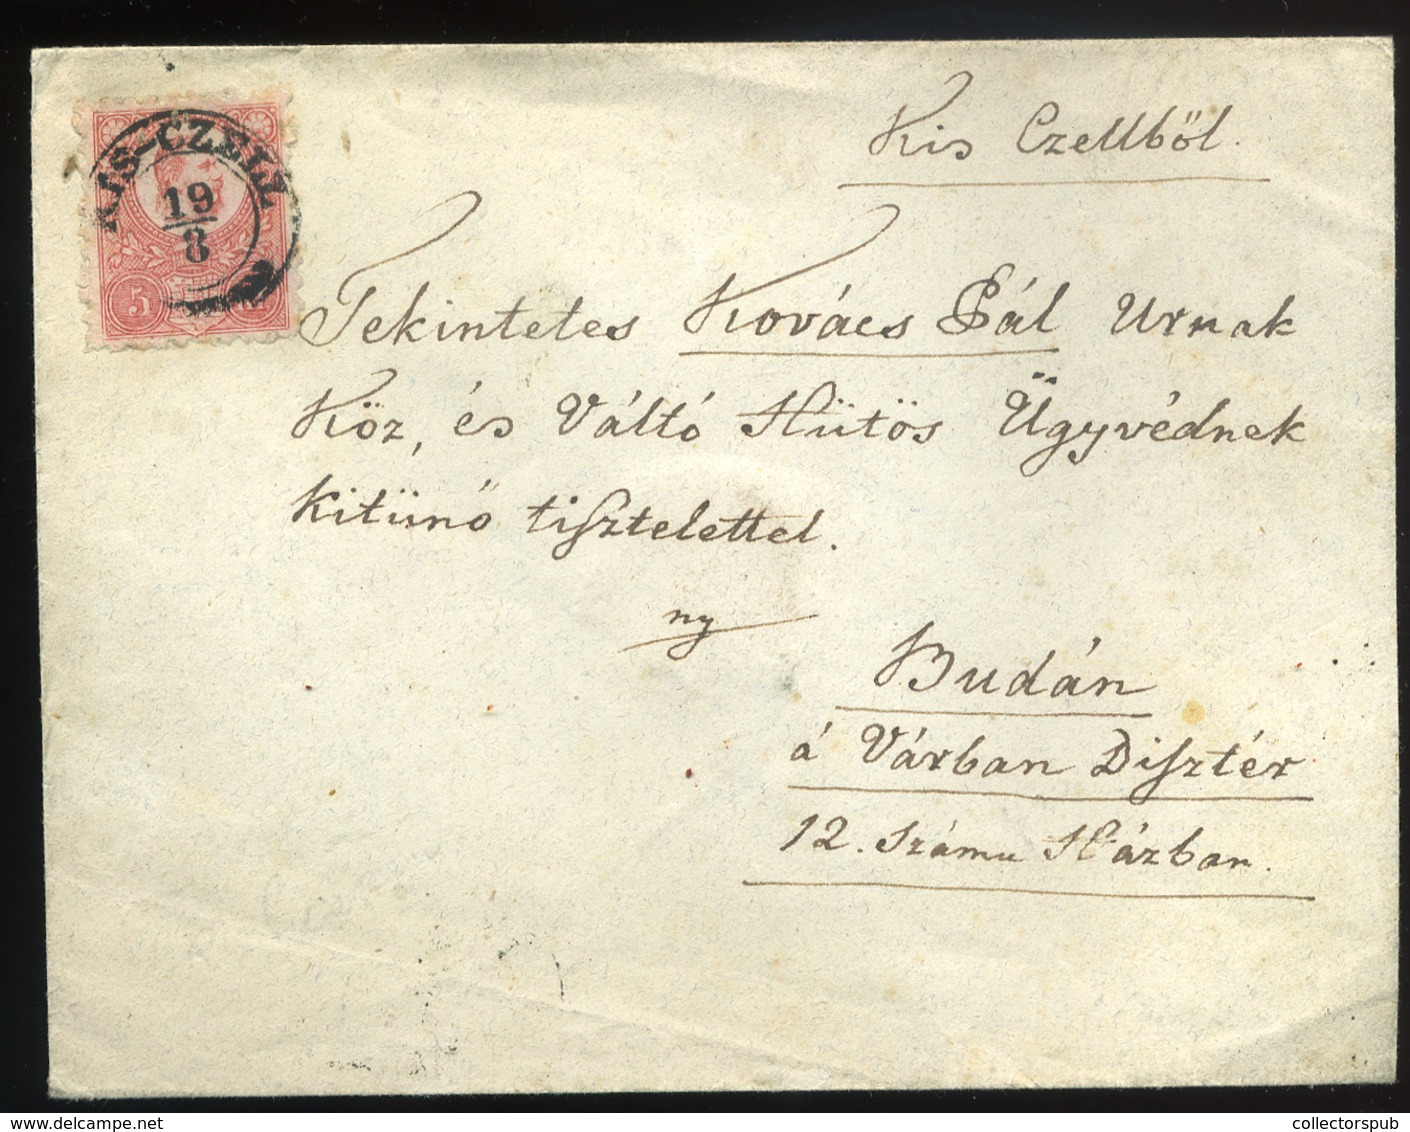 Kis Czellből.
KIS-CZELL
19
8
5
Tekintetes Kovács Pál Urnak
Köz, és Váltó Hütös Ügyvédnek
kitünő tisztelettel.
ny
Budán
á Várban Disztér
12. számu Házban.
collectorspub